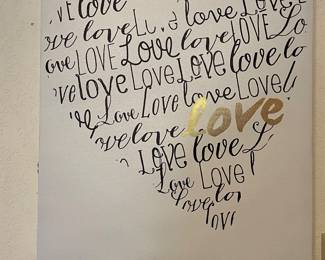 love
ove love Love love Love
ove LOVE Love love LOVE
love Love LOVE Love lo
VE love Love LOVE Love lo
ve Love LOVE Love Love
ove love love
LOVE love L
Love LOVE
Love lo
OVE